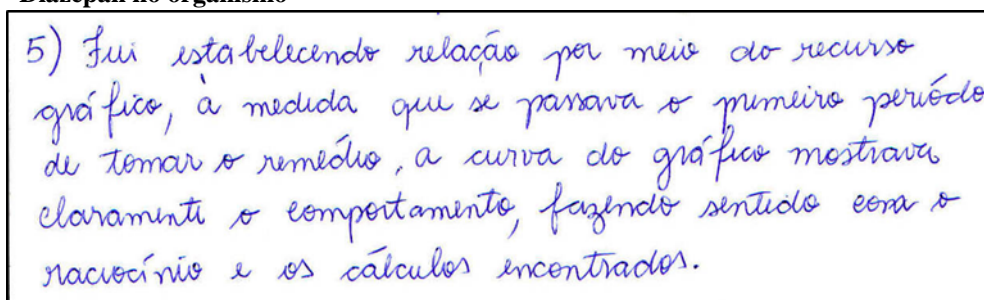 Diazepan no organismo
5) Fui estabelecendo relação por meio do recurso
gráfico, à medida que se passava o primeiro período
de tomar o remédio, a curva do gráfico mostrava
claramente o comportamento, fazendo sentido com o
raciocínio e os cálculos encontrados.